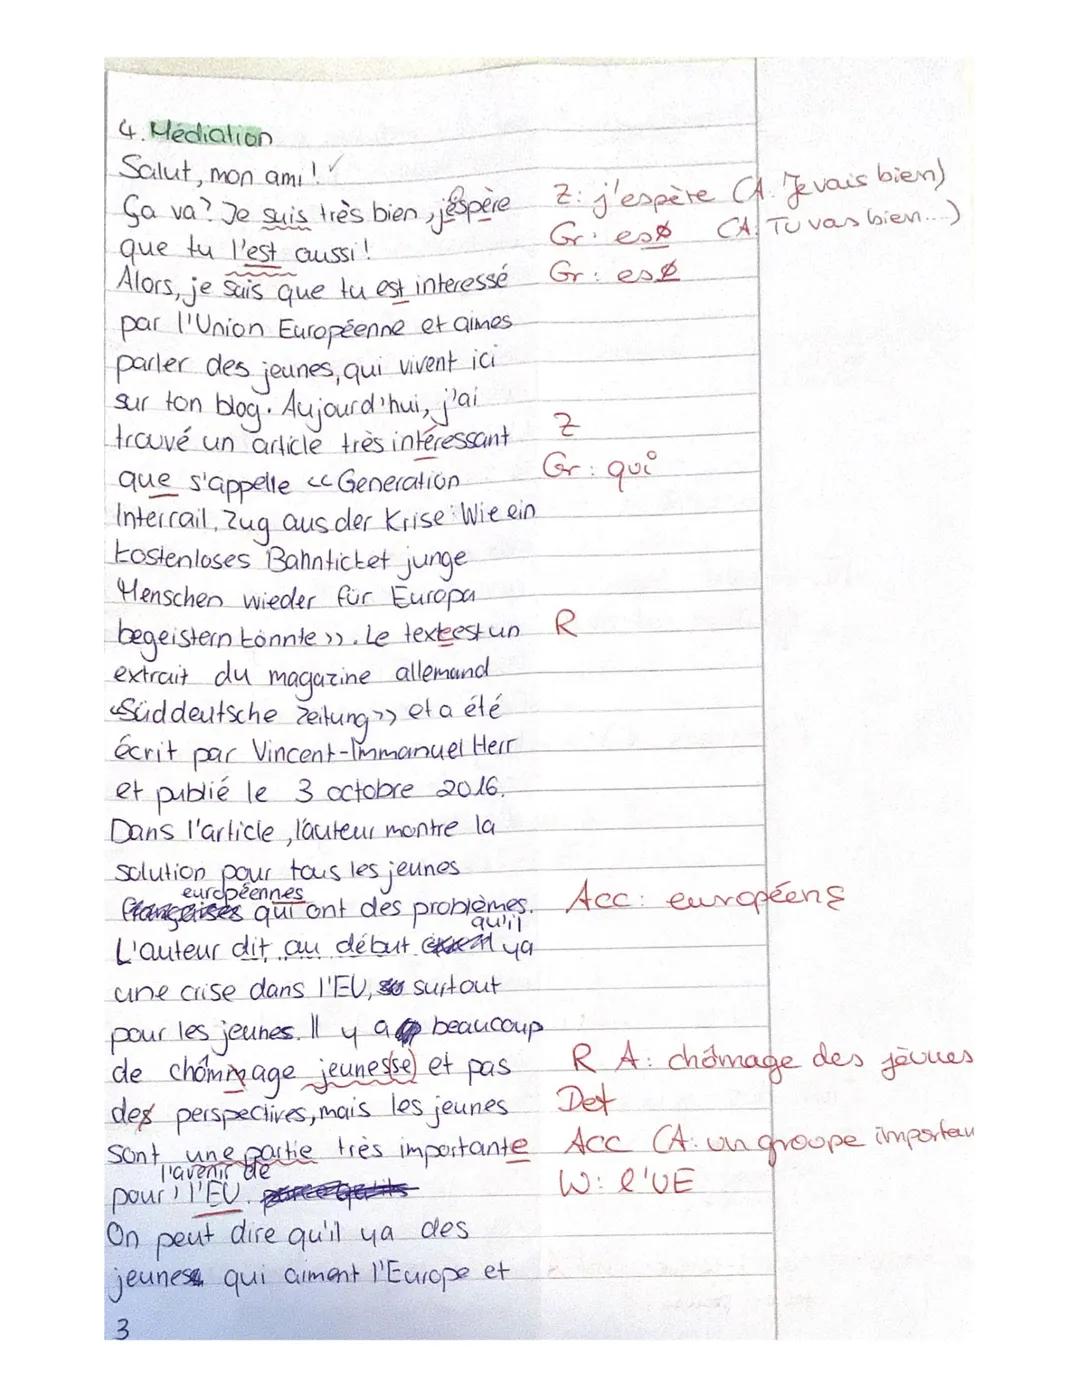 4. Médiation
Salut, mon ami! ✓
Ça va? Je suis très bien, j'éspère Z: j'espère (A. Je vais bien)
que tu l'est aussi! Gr: es (A: Tu vas bien....)
Alors, je sais que tu est interessé Gr: es
par l'Union Européenne et aimes
parler des jeunes, qui vivent ici
sur ton blog. Aujourd'hui, j'ai
trouvé un article très intéressant Z
que s'appelle << Generation Gr: qui
Interrail, Zug aus der Krise: Wie ein
kostenloses Bahnticket junge
Menschen wieder für Europa
begeistern könnte >>. Le texte est un R
extrait du magazine allemand
<<Süddeutsche Zeitung>> et a été
écrit par Vincent-Immanuel Herr
et publié le 3 octobre 2016.
Dans l'article, l'auteur montre la
solution pour tous les jeunes
européennes
françaises qui ont des problèmes. Acc: européens
qu'il
L'auteur dit au début ya
une crise dans l'EU, surtout
pour les jeunes. Il y a beaucoup
de chômmage jeunes(se) et pas R A: chômage des jeunes
des perspectives, mais les jeunes Det
sont une partie très importante Acc (A: un groupe importan
l'avenir de
pour l'EU. W: l'UE
On peut dire qu'il ya des
jeunes qui aiment l'Europe et
3